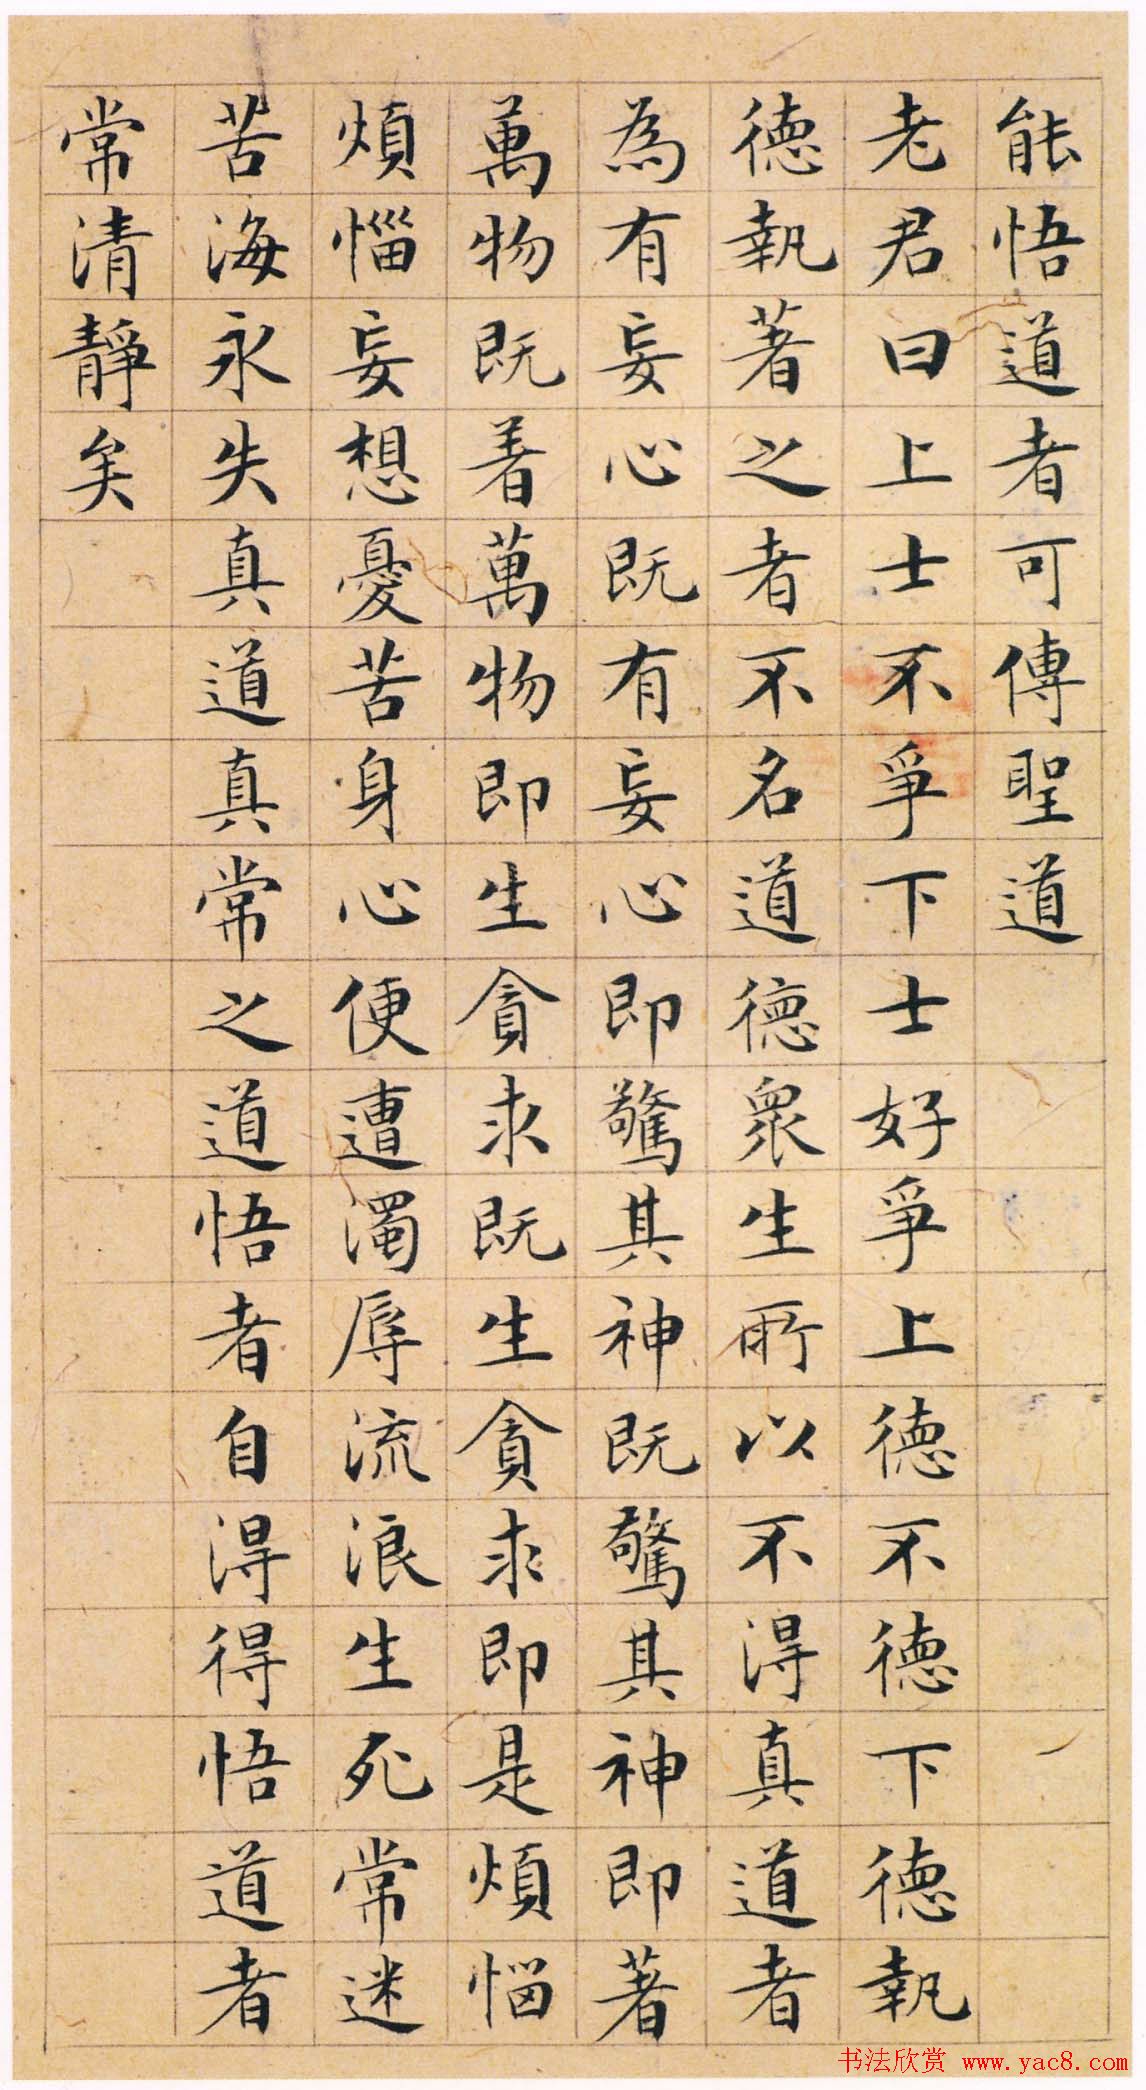 能悟道者可傳聖道
老君曰上士不爭下士好爭上德不德下德執
德執著之者不名道德眾生所以不得真道者
為有妄心既有妄心即驚其神既驚其神即著
萬物既着萬物即生貪求既生貪求即是煩惱
煩惱妄想憂苦身心便遭濁辱流浪生死常迷
苦海永失真道真常之道悟者自得得悟道者
常清靜矣
书法欣赏 www.yac8.com